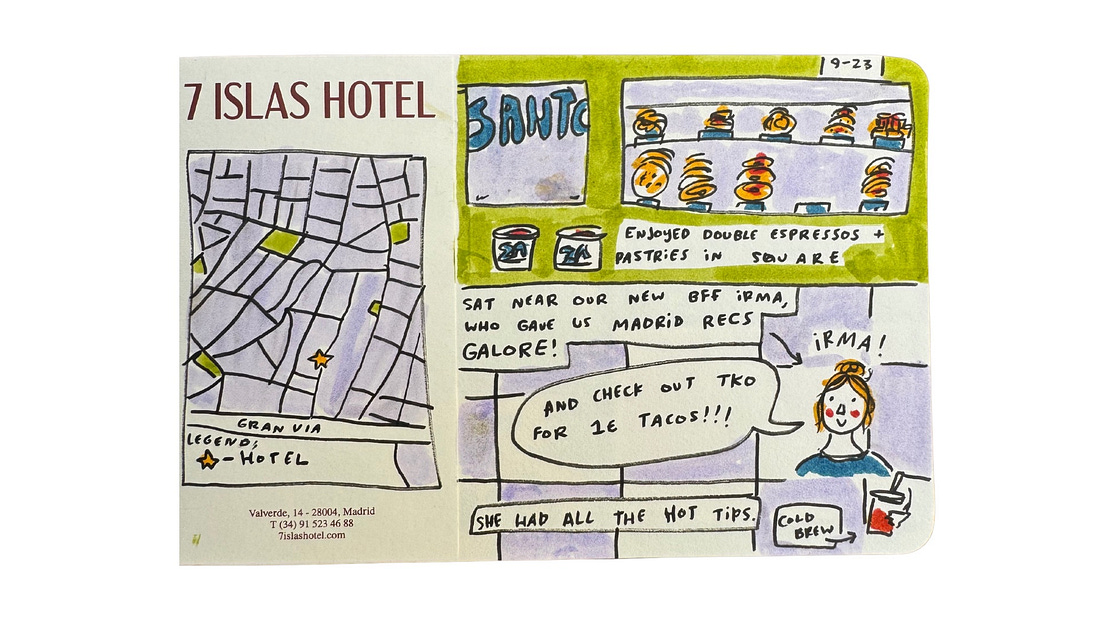 7 ISLAS HOTEL
GRAN VIA
LEGEND;
- HOTEL
Valverde, 14 - 28004, Madrid
T (34) 91 523 46 88
7islashotel.com
9-23
SANTO
SA
ENJOYED DOUBLE ESPRESSOS +
PASTRIES IN SQUARE
SAT NEAR OUR NEW BFF IRMA,
WHO GAVE US MADRID RECS
GALORE!
IRMA!
AND CHECK OUT TKO
FOR 1€ TACOS!!!
SHE HAD ALL THE HOT TIPS.
COLD
BREW